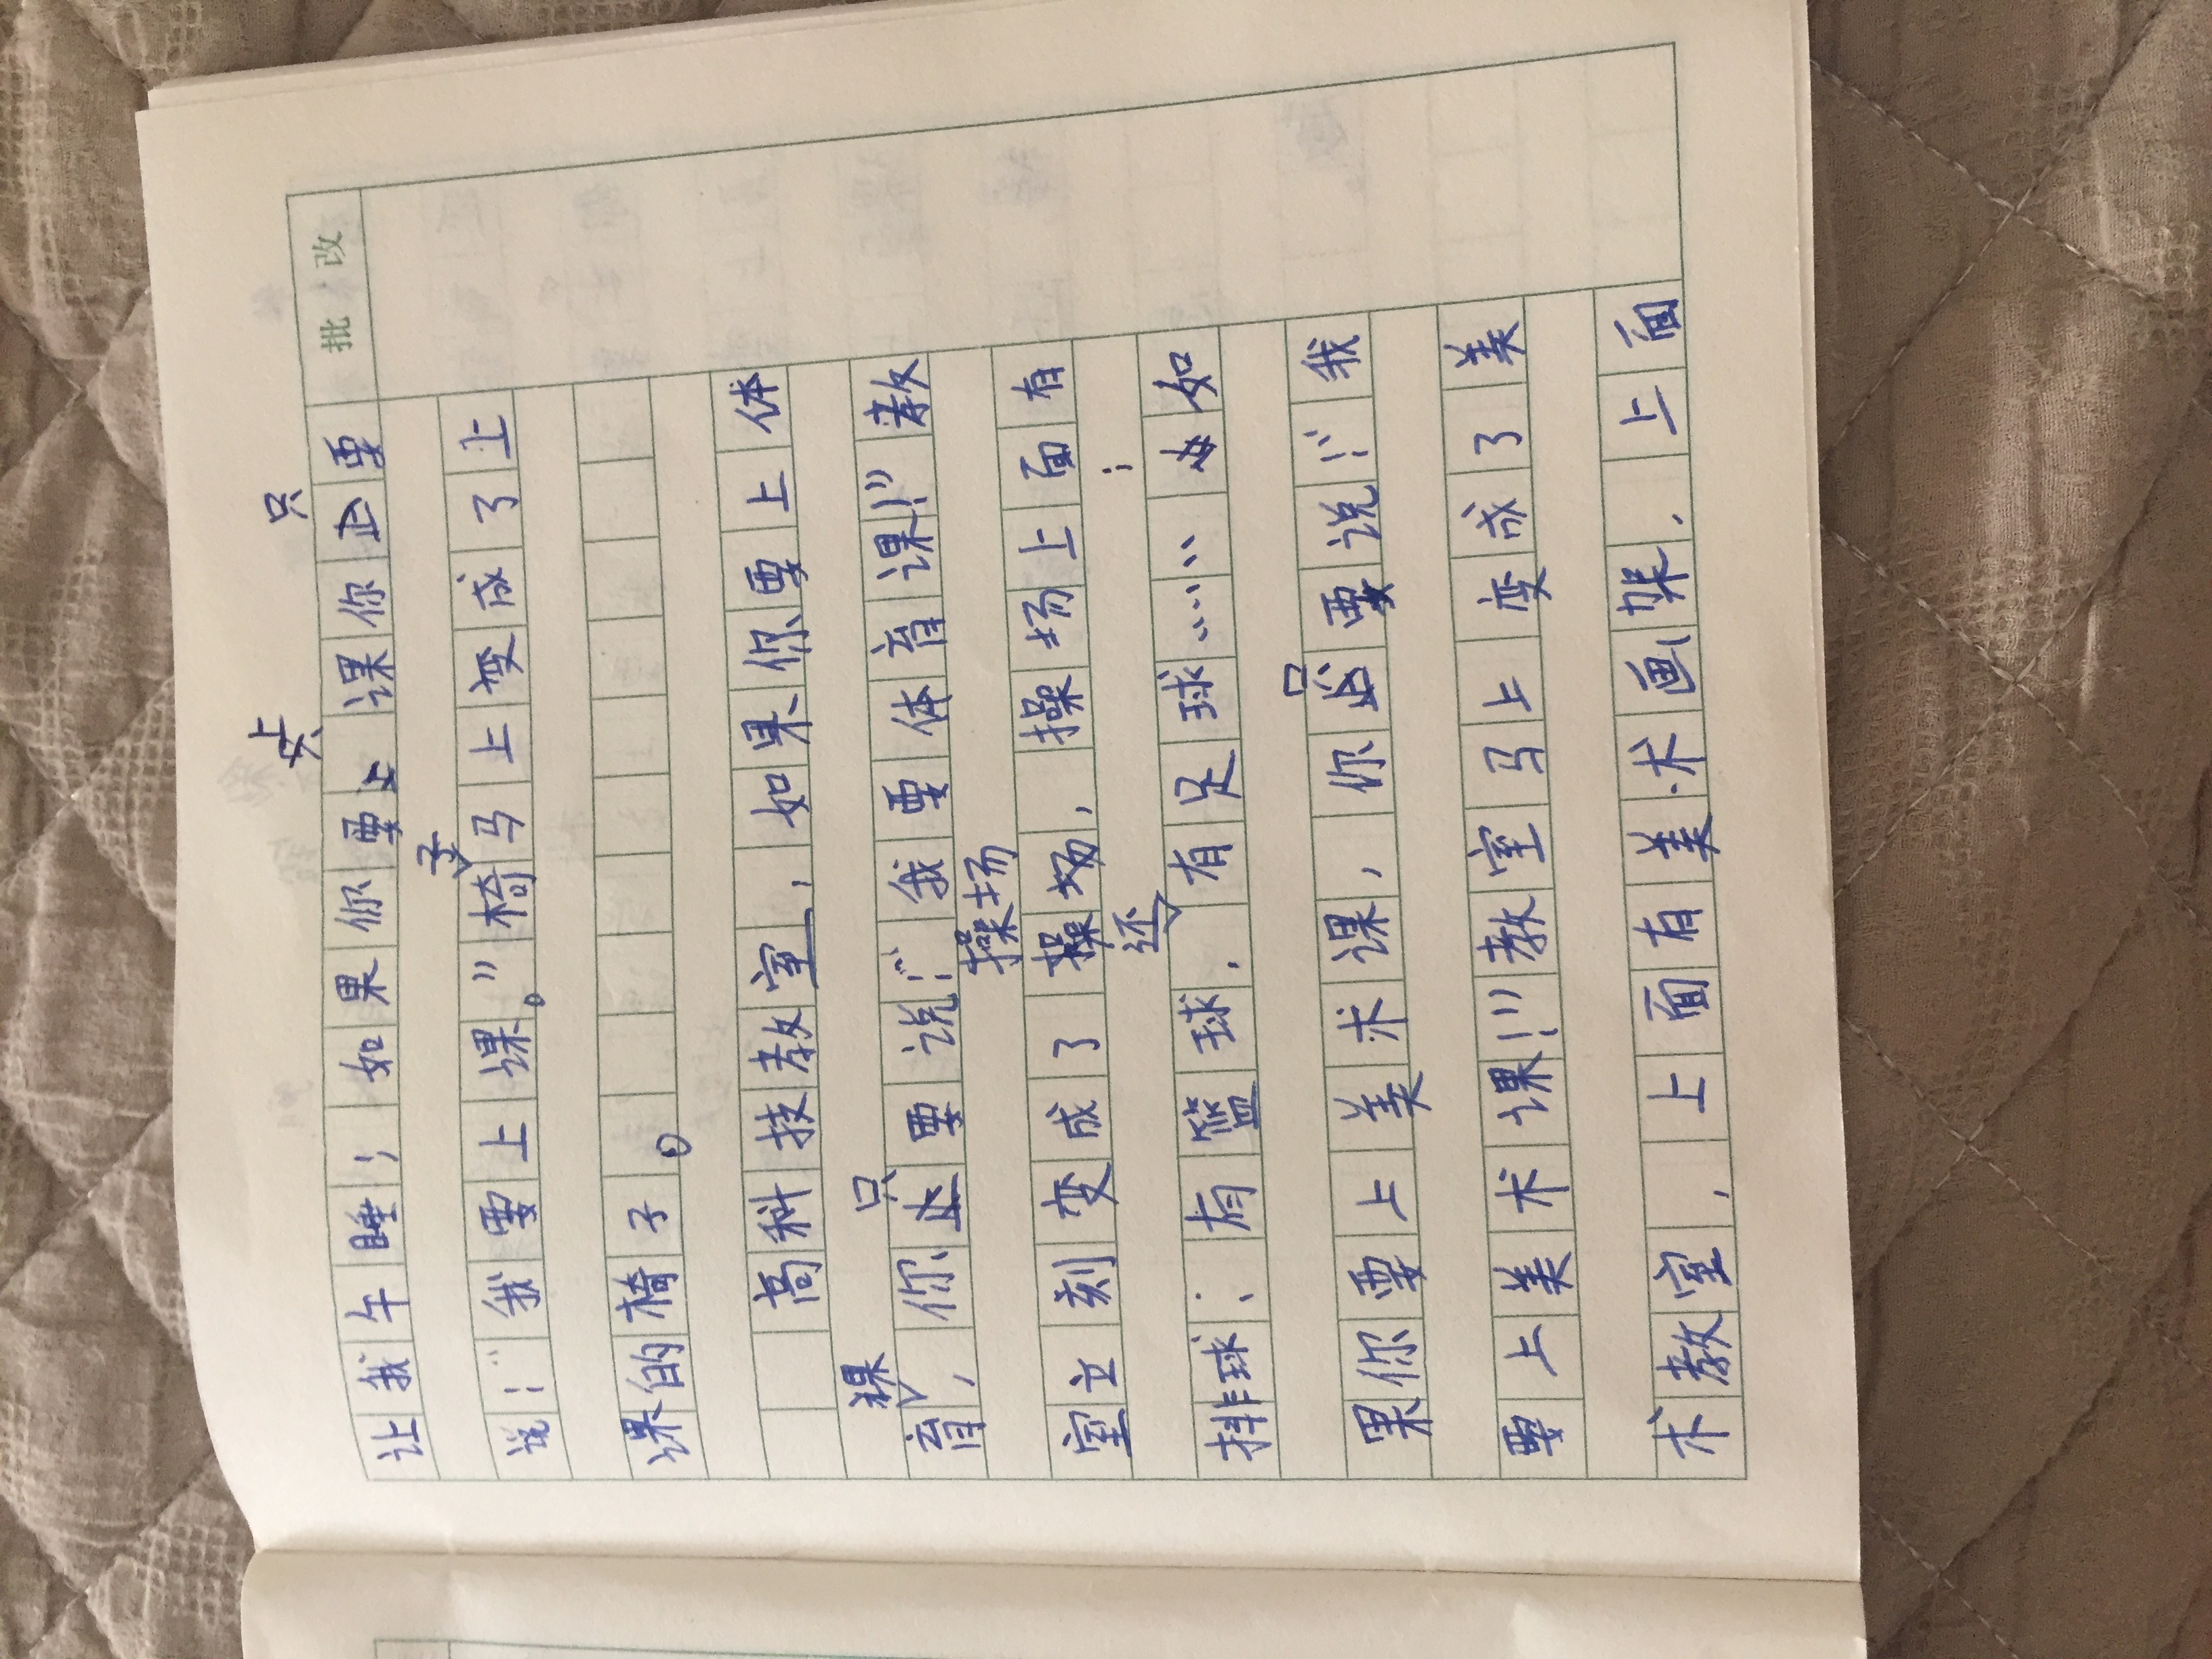 批改
上 只
让我午睡；如果你要上课你只要
子
说：“我要上课。”椅马上变成了上
课的椅子。
高科技教室，如果你要上体
课 只
育，你只要说：“我要体育课！”教
操场
室立刻变成了操场，操场上面有
还
排球、有篮球、有足球……如
只
果你要上美术课，你只要说：“我
要上美术课！”教室马上变成了美
术教室，上面有美术画架，上面